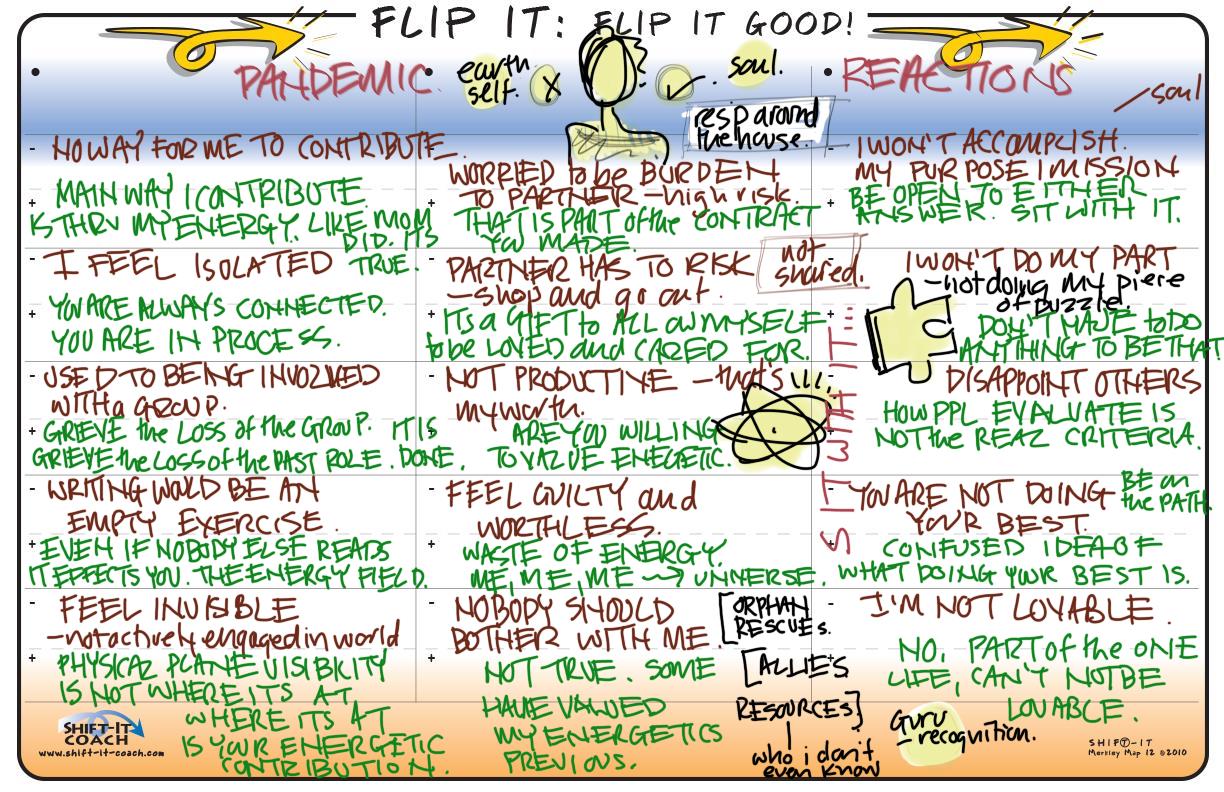 FLIP IT: FLIP IT GOOD!
PANDEMIC
earth
self.
X
soul.
resp around
the house.
REACTIONS
soul
- NO WAY FOR ME TO CONTRIBUTE.
+ MAIN WAY I CONTRIBUTE
IS THRU MY ENERGY. LIKE MOM
DID. IT'S
TRUE.
- I FEEL ISOLATED
+ YOU ARE ALWAYS CONNECTED.
YOU ARE IN PROCESS.
- USED TO BEING INVOLVED
with a GROUP.
+ GRIEVE the LOSS of the GROUP. IT IS
GRIEVE the LOSS of the PAST ROLE. DONE.
- WRITING WOULD BE AN
EMPTY EXERCISE.
+ EVEN IF NOBODY ELSE READS
IT EFFECTS YOU. THE ENERGY FIELD.
- FEEL INVISIBLE
- not actively engaged in world
+ PHYSICAL PLANE VISIBILITY
IS NOT WHERE ITS AT
WHERE ITS AT
IS YOUR ENERGETIC
CONTRIBUTION.
WORRIED to be BURDEN
TO PARTNER - high risk.
THAT IS PART of the CONTRACT
YOU MADE.
PARTNER HAS TO RISK
- shop and go out.
not
shared.
+ ITS a GIFT to ALLOW MYSELF
to be LOVED and CARED FOR.
- NOT PRODUCTIVE - that's
my worth.
+ ARE YOU WILLING
TO VALUE ENERGETIC.
- FEEL GUILTY and
WORTHLESS.
+ WASTE OF ENERGY.
ME, ME, ME → UNIVERSE.
NOBODY SHOULD
BOTHER WITH ME.
[ORPHAN
RESCUEs.
NOT TRUE. SOME
HAVE VALUED
MY ENERGETICS
PREVIOUS.
[ALLIES
RESOURCES]
who i don't
even know
SIT WITH IT...
- I WON'T ACCOMPLISH.
MY PURPOSE | MISSION
+ BE OPEN TO EITHER
ANSWER. SIT WITH IT.
I WON'T DO MY PART
- not doing my piece
of puzzle.
+ DON'T HAVE to DO
ANYTHING TO BE THAT
DISAPPOINT OTHERS
HOW PPL EVALUATE IS
NOT the REAL CRITERIA.
- YOU ARE NOT DOING
YOUR BEST.
BE on
the PATH.
+ CONFUSED IDEA OF
WHAT DOING YOUR BEST IS.
- I'M NOT LOVABLE.
+ NO, PART of the ONE
LIFE, CAN'T NOT BE
LOVABLE.
GURU
- recognition.
SHIFT-IT
COACH
www.shift-it-coach.com
SHIFT-IT
Merkley Map 12 ©2010